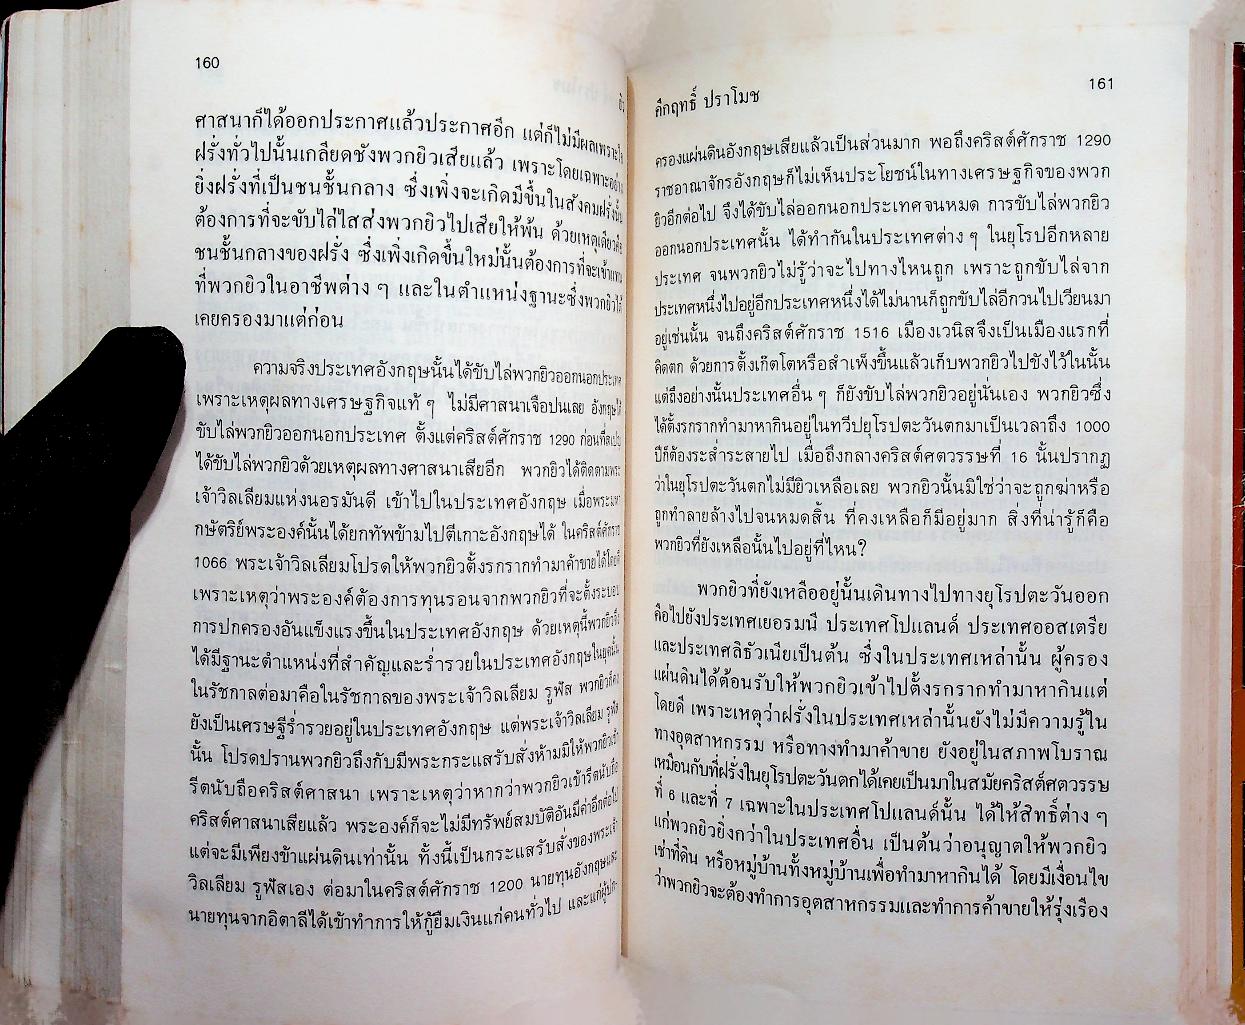 160
ศาสนาก็ได้ออกประกาศแล้วประกาศอีก แต่ก็ไม่มีผลเพราะ
ฝรั่งทั่วไปนั้นเกลียดชังพวกยิวเสียแล้ว เพราะโดยเฉพาะอย่าง
ยิ่งฝรั่งที่เป็นชนชั้นกลาง ซึ่งเพิ่งจะเกิดมีขึ้นในสังคมฝรั่งนั้น
ต้องการที่จะขับไล่ไสส่งพวกยิวไปเสียให้พ้น ด้วยเหตุเดียวคือ
ชนชั้นกลางของฝรั่ง ซึ่งเพิ่งเกิดขึ้นใหม่นั้นต้องการที่จะเข้าแทน
ที่พวกยิวในอาชีพต่าง ๆ และในตำแหน่งฐานะซึ่งพวกยิวได้
เคยครองมาแต่ก่อน
ความจริงประเทศอังกฤษนั้นได้ขับไล่พวกยิวออกนอกประเทศ
เพราะเหตุผลทางเศรษฐกิจแท้ ๆ ไม่มีศาสนาเจือปนเลย อังกฤษได้
ขับไล่พวกยิวออกนอกประเทศ ตั้งแต่คริสต์ศักราช 1290 ก่อนที่สเปญ
ได้ขับไล่พวกยิวด้วยเหตุผลทางศาสนาเสียอีก พวกยิวได้ติดตามพระ
เจ้าวิลเลียมแห่งนอรมันดี เข้าไปในประเทศอังกฤษ เมื่อพระมหา
กษัตริย์พระองค์นั้นได้ยกทัพข้ามไปตีเกาะอังกฤษได้ ในคริสต์ศักราช
1066 พระเจ้าวิลเลียมโปรดให้พวกยิวตั้งรกรากทำมาค้าขายได้โดยดี
เพราะเหตุว่าพระองค์ต้องการทุนรอนจากพวกยิวที่จะตั้งระบอบ
การปกครองอันแข็งแรงขึ้นในประเทศอังกฤษ ด้วยเหตุนี้พวกยิวจึง
ได้มีฐานะตำแหน่งที่สำคัญและร่ำรวยในประเทศอังกฤษในยุคนั้น
ในรัชกาลต่อมาคือในรัชกาลของพระเจ้าวิลเลียม รูฟัส พวกยิวก็คง
ยังเป็นเศรษฐีร่ำรวยอยู่ในประเทศอังกฤษ แต่พระเจ้าวิลเลียม รูฟัส
นั้น โปรดปรานพวกยิวถึงกับมีพระกระแสรับสั่งห้ามมิให้พวกยิวเข้า
รีตนับถือคริสต์ศาสนา เพราะเหตุว่าหากว่าพวกยิวเข้ารีตนับถือ
คริสต์ศาสนาเสียแล้ว พระองค์ก็จะไม่มีทรัพย์สมบัติอันมีค่าอีกต่อไป
แต่จะมีเพียงข้าแผ่นดินเท่านั้น ทั้งนี้เป็นกระแสรับสั่งของพระเจ้า
วิลเลียม รูฟัสเอง ต่อมาในคริสต์ศักราช 1200 นายทุนอังกฤษและ
นายทุนจากอิตาลีได้เข้าทำการให้กู้ยืมเงินแก่คนทั่วไป และแก่ผู้ปก-
คึกฤทธิ์ ปราโมช
161
ครองแผ่นดินอังกฤษเสียแล้วเป็นส่วนมาก พอถึงคริสต์ศักราช 1290
ราชอาณาจักรอังกฤษก็ไม่เห็นประโยชน์ในทางเศรษฐกิจของพวก
ยิวอีกต่อไป จึงได้ขับไล่ออกนอกประเทศจนหมด การขับไล่พวกยิว
ออกนอกประเทศนั้น ได้ทำกันในประเทศต่าง ๆ ในยุโรปอีกหลาย
ประเทศ จนพวกยิวไม่รู้ว่าจะไปทางไหนถูก เพราะถูกขับไล่จาก
ประเทศหนึ่งไปอยู่อีกประเทศหนึ่งได้ไม่นานก็ถูกขับไล่อีกวนไปเวียนมา
อยู่เช่นนั้น จนถึงคริสต์ศักราช 1516 เมืองเวนิสจึงเป็นเมืองแรกที่
คิดตก ด้วยการตั้งเก๊ตโตหรือสำเพ็งขึ้นแล้วเก็บพวกยิวไปขังไว้ในนั้น
แต่ถึงอย่างนั้นประเทศอื่น ๆ ก็ยังขับไล่พวกยิวอยู่นั่นเอง พวกยิวซึ่ง
ได้ตั้งรกรากทำมาหากินอยู่ในทวีปยุโรปตะวันตกมาเป็นเวลาถึง 1000
ปีก็ต้องระส่ำระสายไป เมื่อถึงกลางคริสต์ศตวรรษที่ 16 นั้นปรากฏ
ว่าในยุโรปตะวันตกไม่มียิวเหลือเลย พวกยิวนั้นมิใช่ว่าจะถูกฆ่าหรือ
ถูกทำลายล้างไปจนหมดสิ้น ที่คงเหลือก็มีอยู่มาก สิ่งที่น่ารู้ก็คือ
พวกยิวที่ยังเหลือนั้นไปอยู่ที่ไหน?
พวกยิวที่ยังเหลืออยู่นั้นเดินทางไปทางยุโรปตะวันออก
คือไปยังประเทศเยอรมนี ประเทศโปแลนด์ ประเทศออสเตรีย
และประเทศลิธัวเนียเป็นต้น ซึ่งในประเทศเหล่านั้น ผู้ครอง
แผ่นดินได้ต้อนรับให้พวกยิวเข้าไปตั้งรกรากทำมาหากินแต่
โดยดี เพราะเหตุว่าฝรั่งในประเทศเหล่านั้นยังไม่มีความรู้ใน
ทางอุตสาหกรรม หรือทางทำมาค้าขาย ยังอยู่ในสภาพโบราณ
เหมือนกับที่ฝรั่งในยุโรปตะวันตกได้เคยเป็นมาในสมัยคริสต์ศตวรรษ
ที่ 6 และที่ 7 เฉพาะในประเทศโปแลนด์นั้น ได้ให้สิทธิ์ต่าง ๆ
แก่พวกยิวยิ่งกว่าในประเทศอื่น เป็นต้นว่าอนุญาตให้พวกยิว
เช่าที่ดิน หรือหมู่บ้านทั้งหมู่บ้านเพื่อทำมาหากินได้ โดยมีเงื่อนไข
ว่าพวกยิวจะต้องทำการอุตสาหกรรมและทำการค้าขายให้รุ่งเรือง